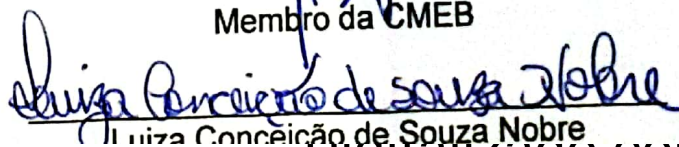 Membro da CMEB
Luiza Conceição de Souza Nobre
Luiza Conceição de Souza Nobre